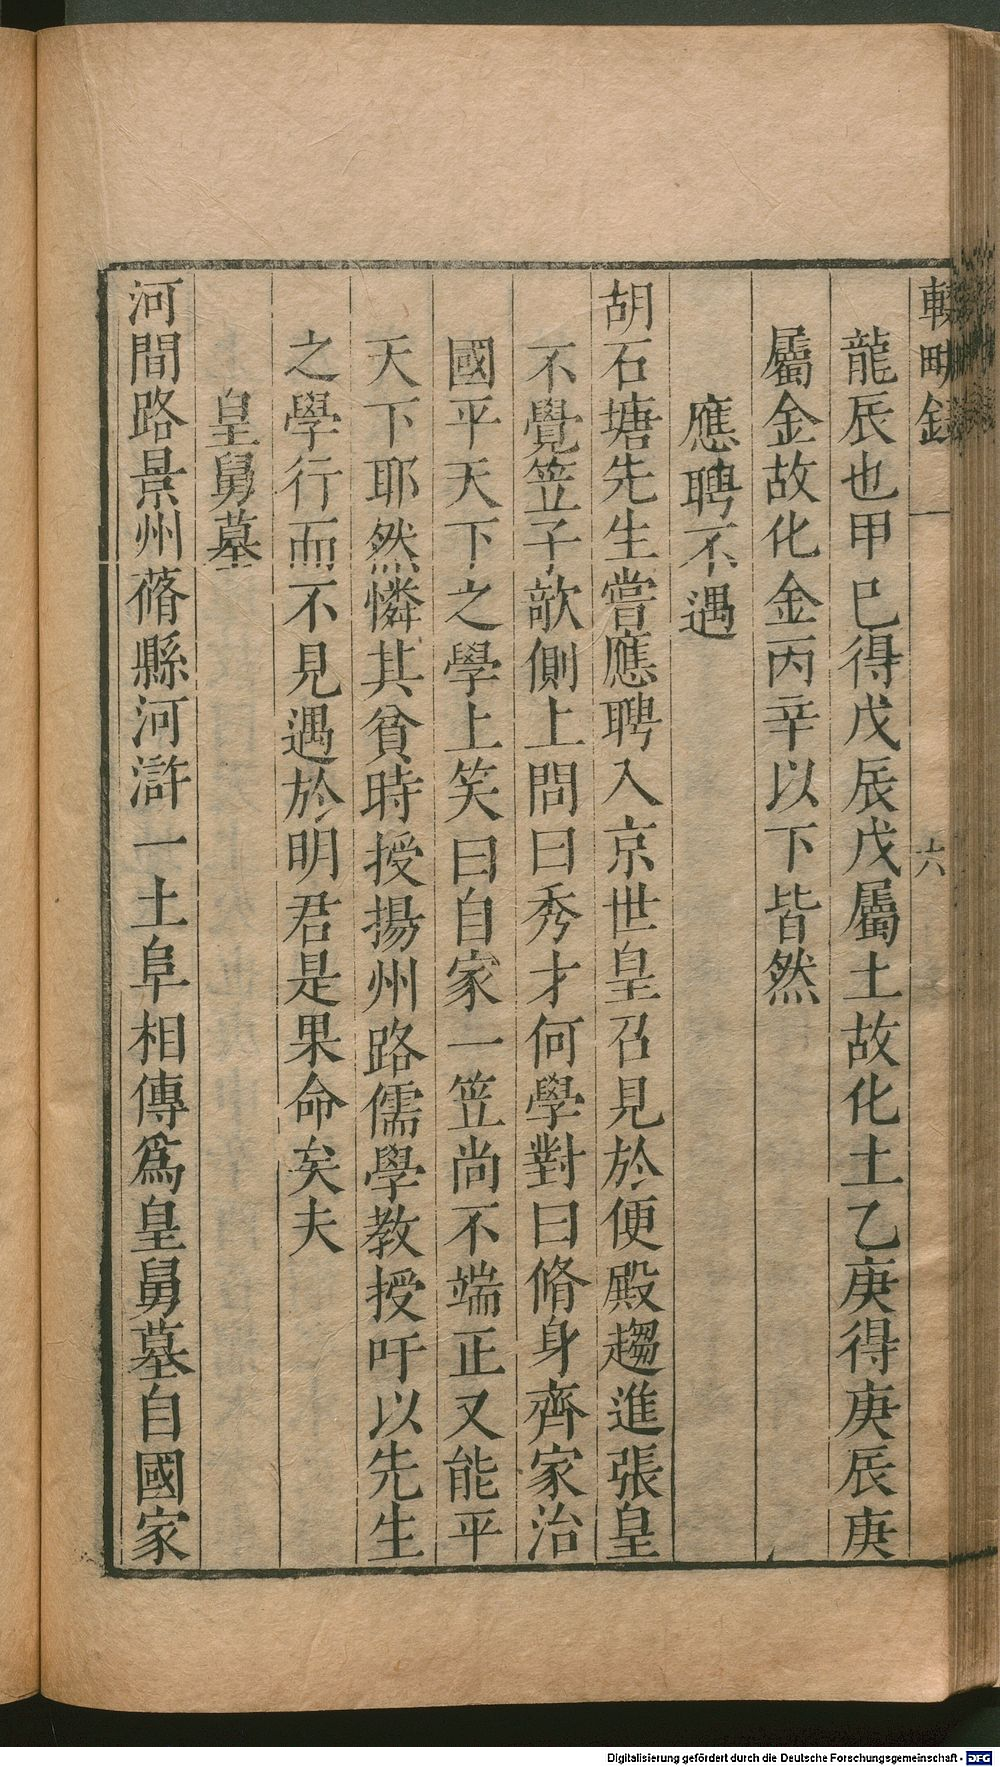 輟畊錄 一 六
龍辰也甲巳得戊辰戊屬土故化土乙庚得庚辰庚
屬金故化金丙辛以下皆然
應聘不遇
胡石塘先生嘗應聘入京世皇召見於便殿趨進張皇
不覺笠子欹側上問曰秀才何學對曰脩身齊家治
國平天下之學上笑曰自家一笠尚不端正又能平
天下耶然憐其貧時授揚州路儒學教授吁以先生
之學行而不見遇於明君是果命矣夫
皇舅墓
河間路景州蓨縣河滸一土阜相傳爲皇舅墓自國家
Digitalisierung gefördert durch die Deutsche Forschungsgemeinschaft - DFG